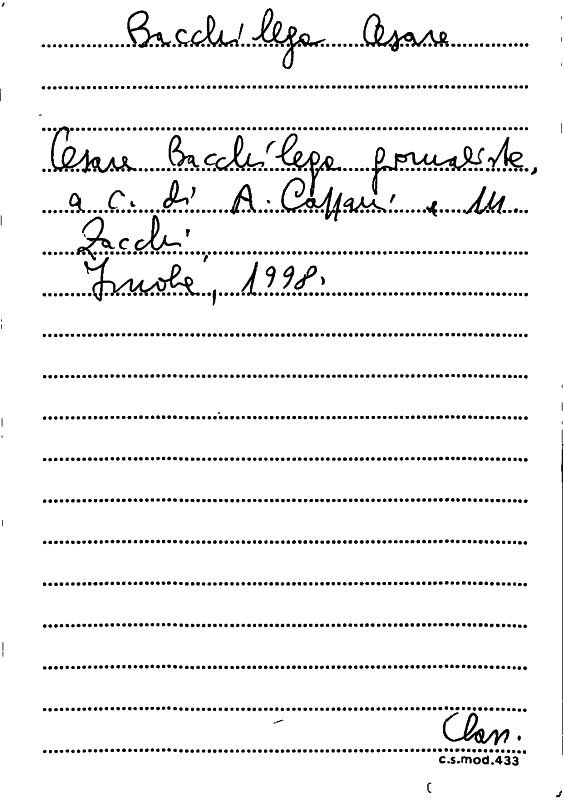 Bacchilega Cesare
Cesare Bacchilega giornalista,
a c. di A. Caffarri e M.
Zacchi,
Imola, 1998.
Clas.
c.s.mod.433